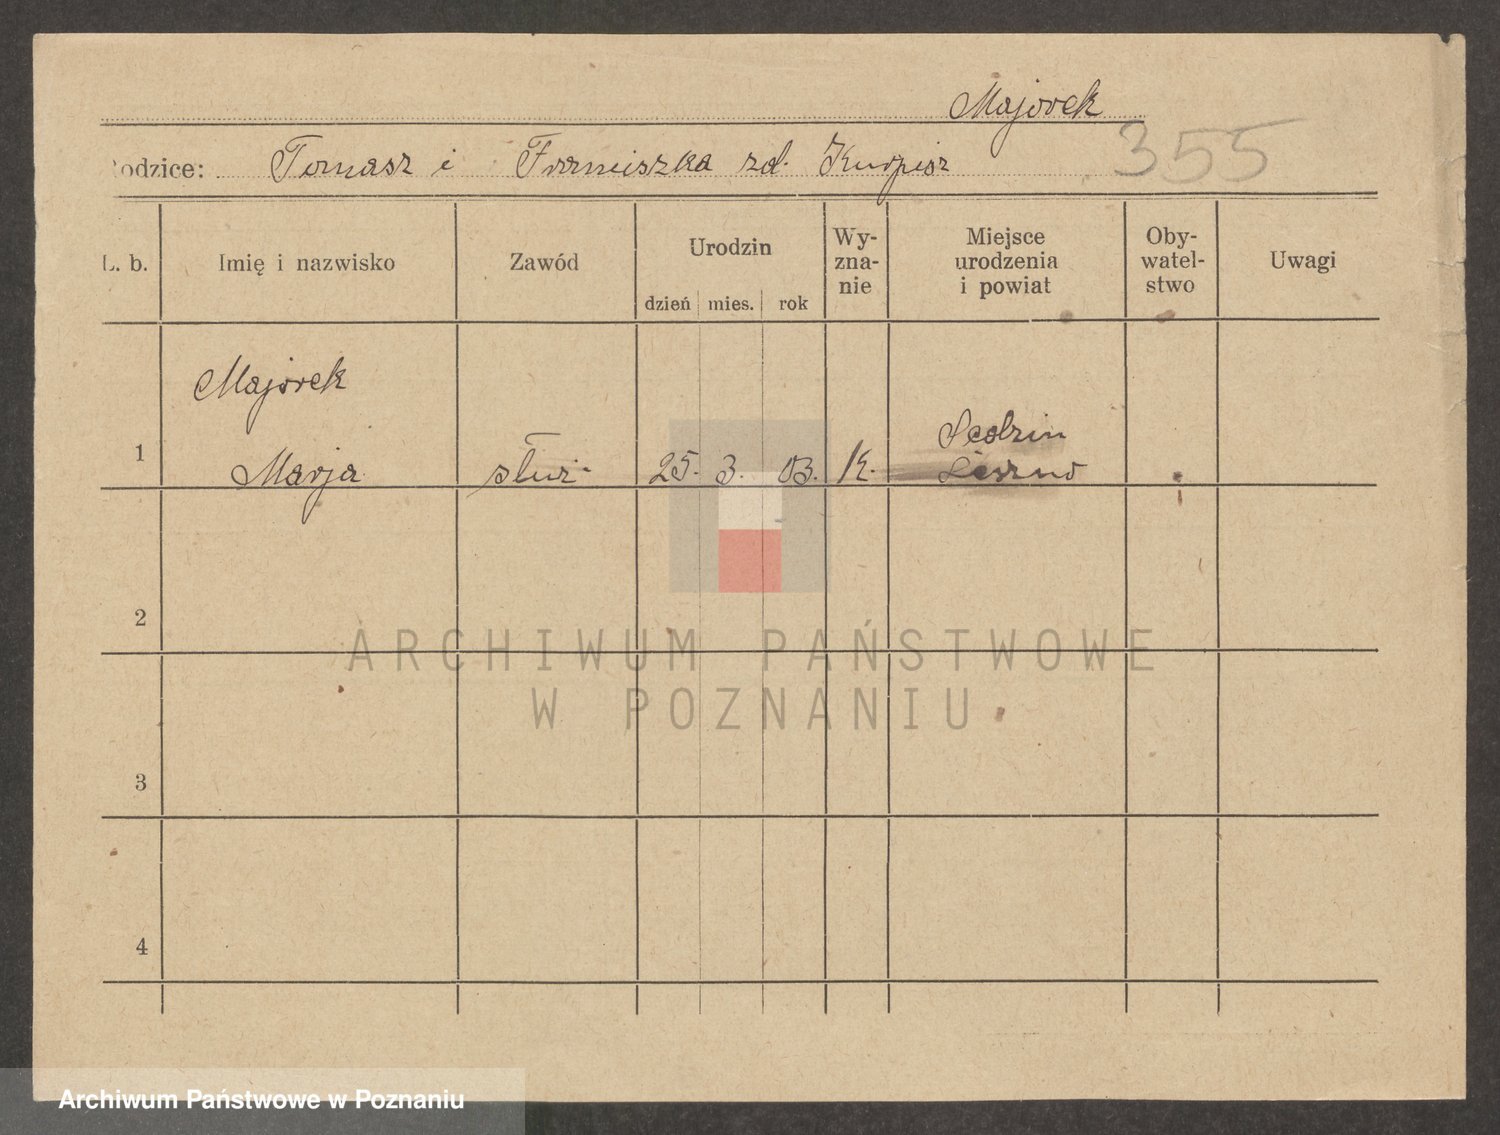 Majorek
Rodzice: Tomasz i Franciszka zd. Kurpisz 355
L. b. Imię i nazwisko Zawód Urodzin dzień mies. rok Wy-zna-nie Miejsce urodzenia i powiat Oby-watel-stwo Uwagi
Majorek
1 Marja służ. 25. 3. 03. K.
Leszno
2
ARCHIWUM PAŃSTWOWE
W POZNANIU
3
4
Archiwum Państwowe w Poznaniu